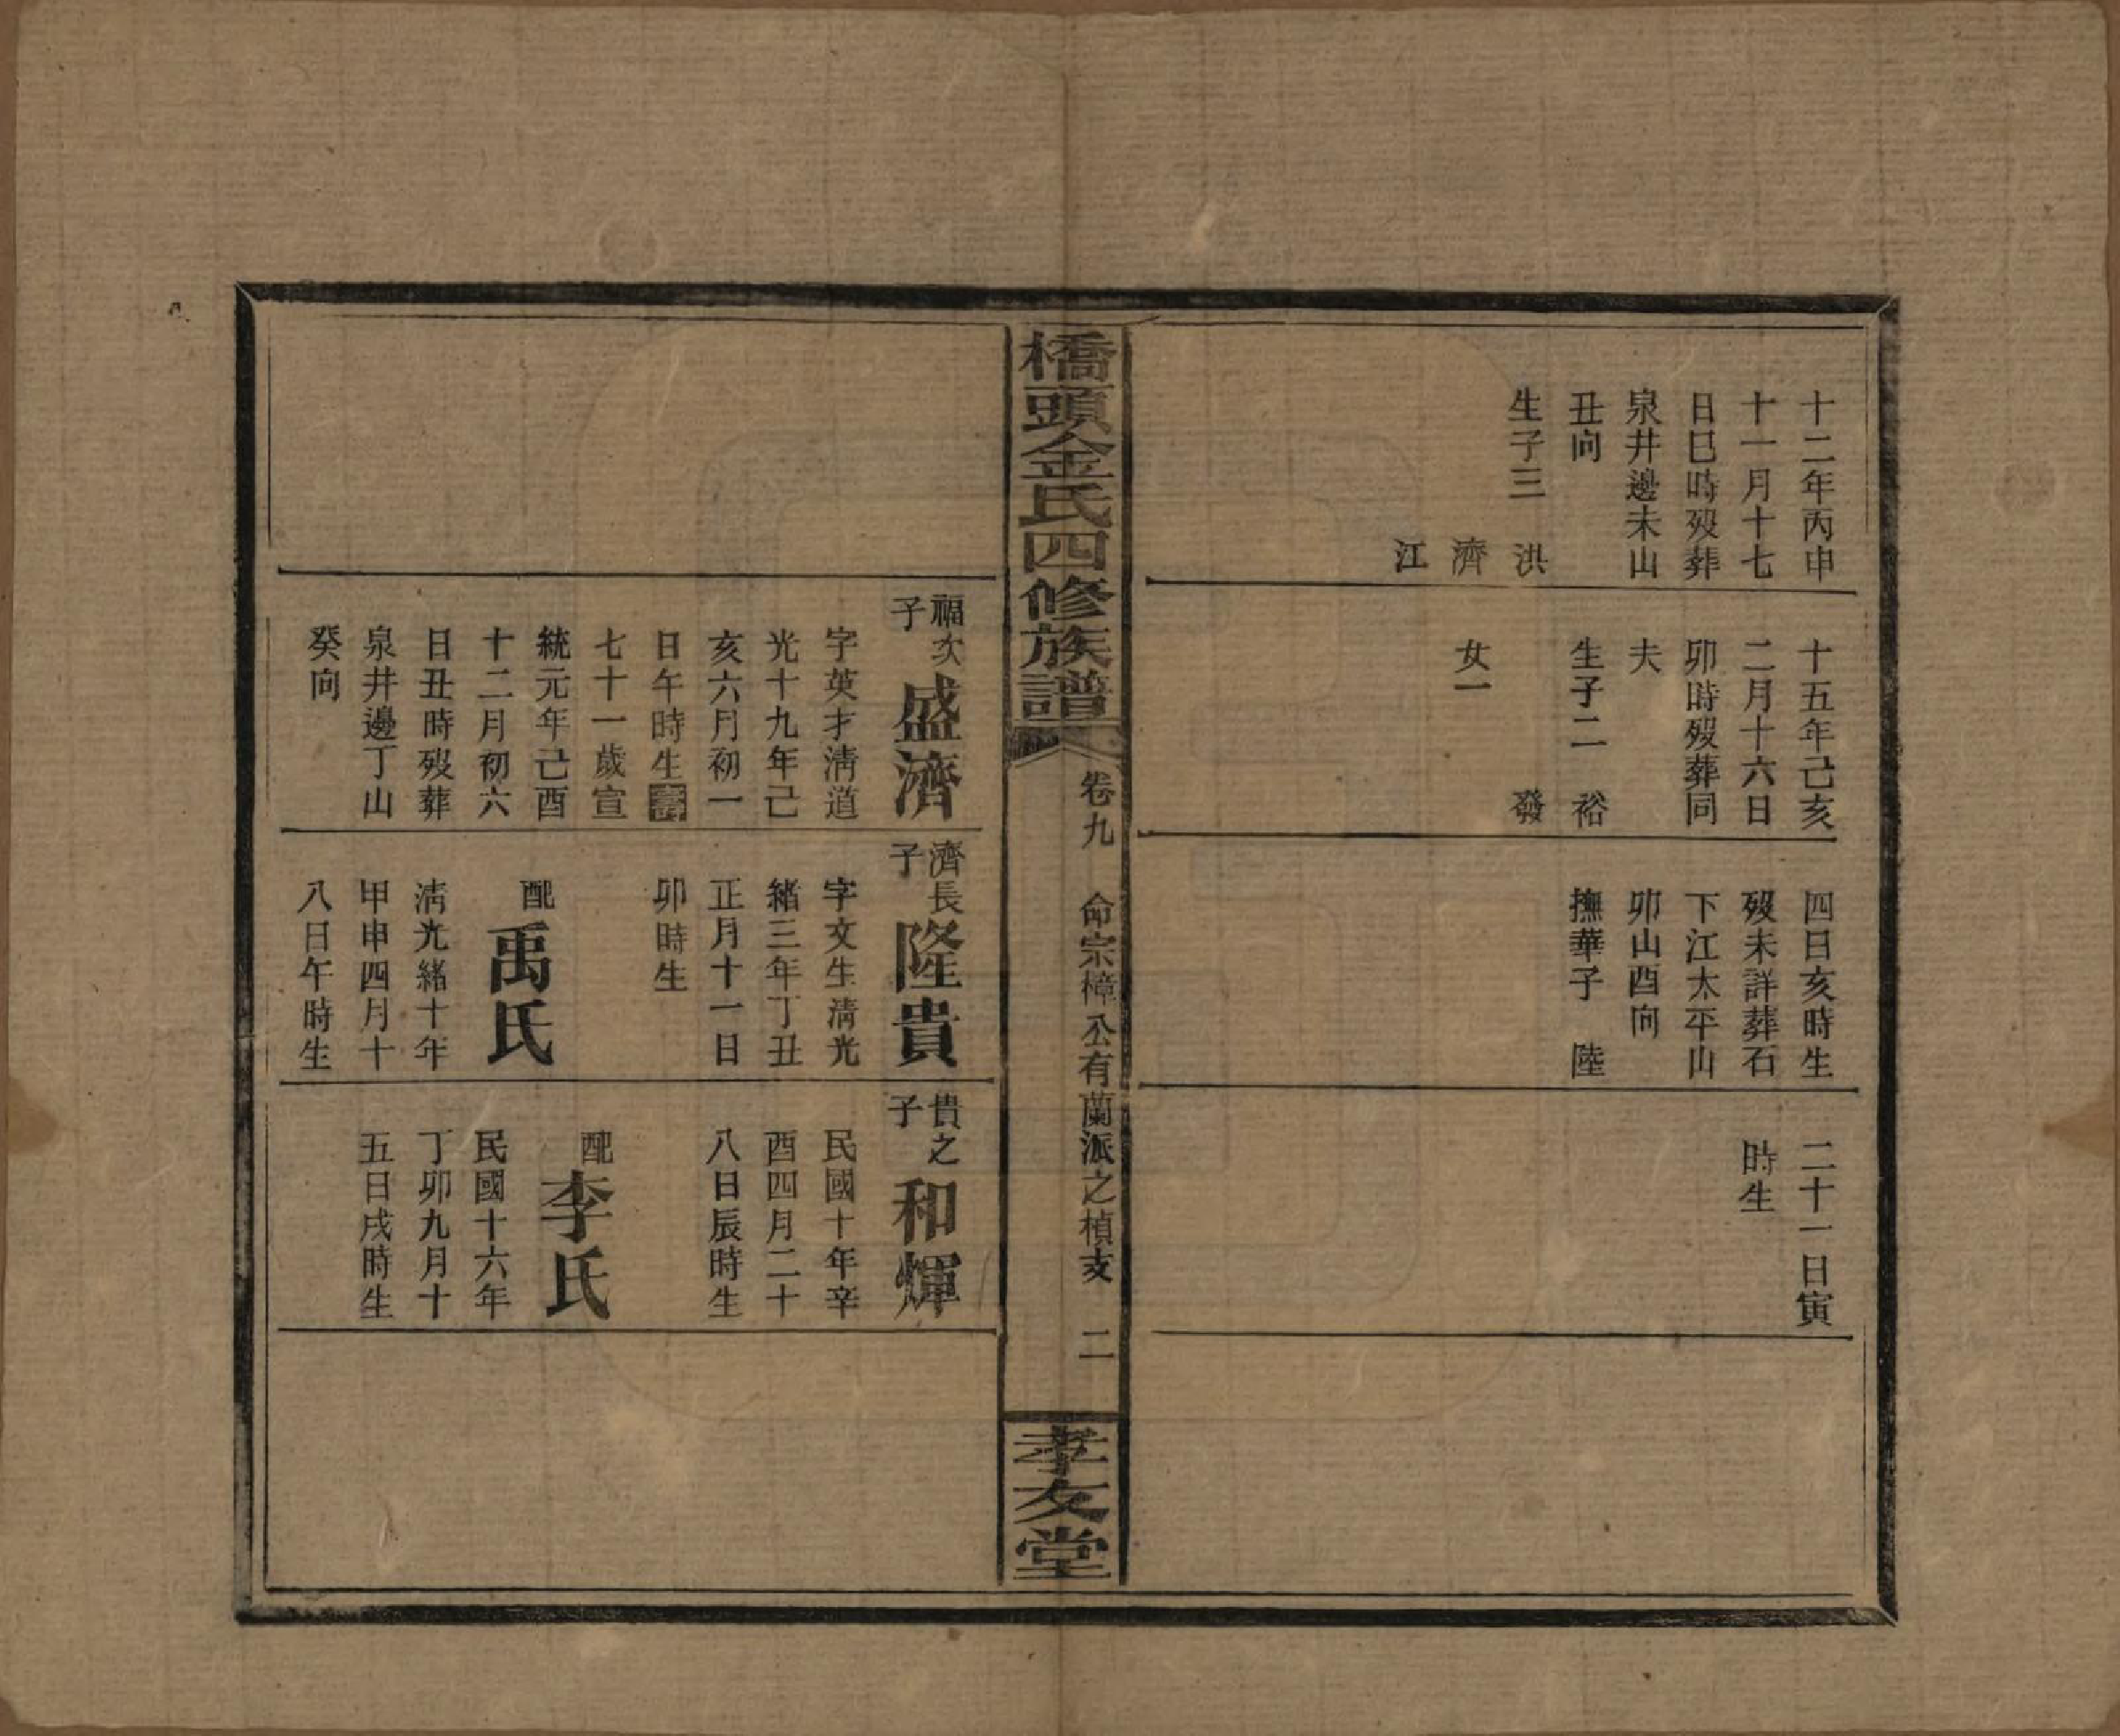 十二年丙申
十一月十七
日巳時歿葬
泉井邊未山
丑向
生子三　洪
濟
江
十五年己亥
二月十六日
卯時歿葬同
夫
生子二　裕
發
女一
四日亥時生
歿未詳葬石
下江太平山
卯山酉向
撫華子　陸
二十一日寅
時生
橋頭金氏四修族譜
卷九　命宗樟公有蘭派之楨支　二
孝友堂
福次子
盛濟
字英才淸道
光十九年己
亥六月初一
日午時生壽
七十一歲宣
統元年己酉
十二月初六
日丑時歿葬
泉井邊丁山
癸向
濟長子
隆貴
字文生淸光
緒三年丁丑
正月十一日
卯時生
配
禹氏
淸光緒十年
甲申四月十
八日午時生
貴之子
和煇
民國十年辛
酉四月二十
八日辰時生
配
李氏
民國十六年
丁卯九月十
五日戌時生